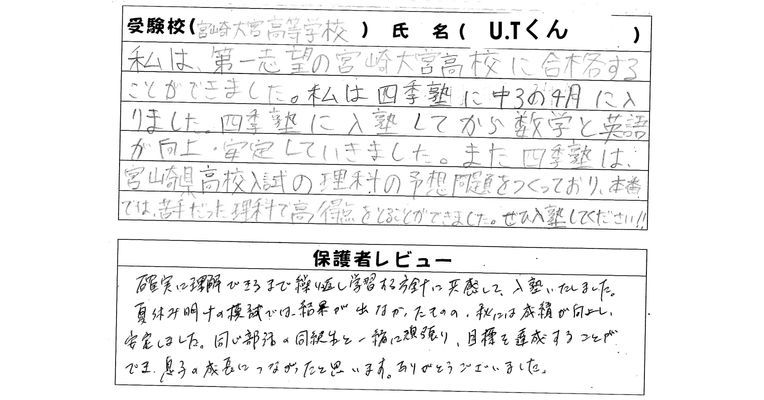 受験校(宮崎大宮高等学校) 氏名( U.Tくん )
私は、第一志望の宮崎大宮高校に合格する
ことができました。私は四季塾に中3の4月に入
りました。四季塾に入塾してから数学と英語
が向上・安定していきました。また四季塾は、
宮崎県高校入試の理科の予想問題をつくっており、本番
では、苦手だった理科で高得点をとることができました。ぜひ入塾してください!!
保護者レビュー
確実に理解できるまで繰り返し学習する方針に共感して、入塾いたしました。
夏休み明けの模試では、結果が出なかったものの、秋には成績が向上し、
安定しました。同じ部活の同級生と一緒に頑張り、目標を達成することが
でき、息子の成長につながったと思います。ありがとうございました。